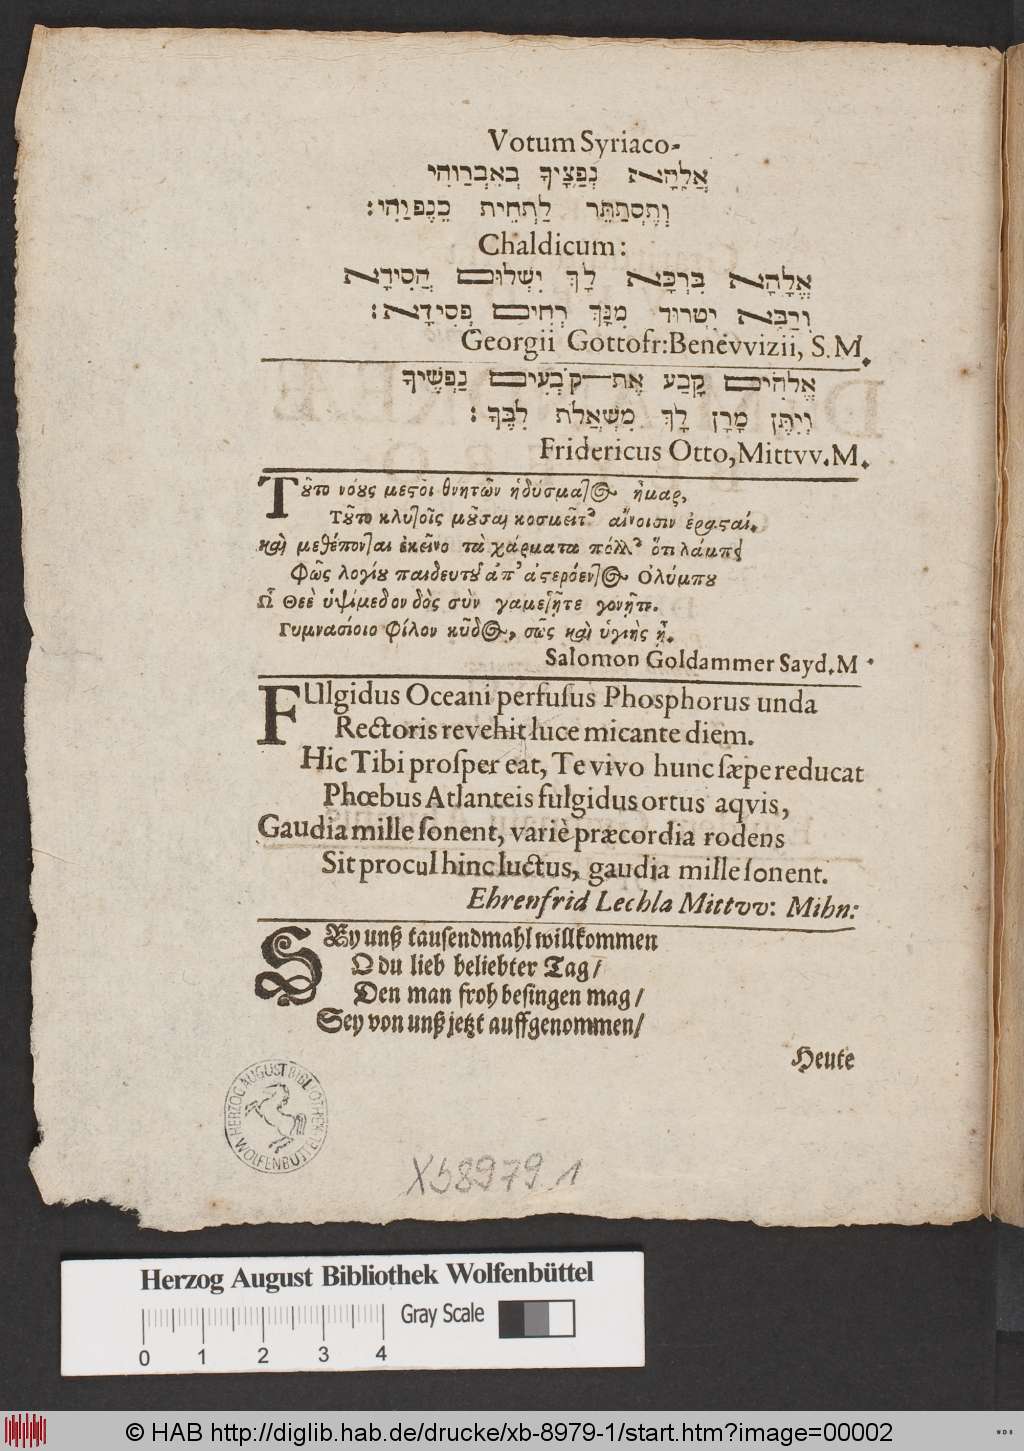 Votum Syriaco-
אֲלָהָא נְפַצָּיךָ בְאִבְרַוהִי
וְתֶסְתַתֵּר לַתְחֵית כֵנֶפוַהִי:
Chaldicum:
אֱלָהָא בִּרְכָּא לָךְ יִשְׁלוּם הֲסִידָא
וְרַבִּא יִטְרוּד מִנָּךְ רְחִים פְּסִידָא:
Georgii Gottofr: Benevvizii, S. M.
אֱלֹהִים קָבַע אֶת־קֹבְעִים נַפְשֶׁיךָ
וְיִתֶּן מָרָן לָךְ מִשְׁאֲלֹת לִבֶּךָ:
Fridericus Otto, Mittvv. M.
Τοῦτο νόους μεστοὶ θνητῶν ἡδύσματος ἦμαρ,
Τοῦτο κλυτοῖς μοῦσαι κοσμεῖτ' αἴνοισιν ἐραςταί.
καὶ μεθέπονται ἐκεῖνο τὰ χάρματα πόλλ' ὅτι λάμπει
Φῶς λογίου παιδευτοῦ ἀπ' ἀςερόεντος Ολύμπου
Ω Θεὲ ὑψίμεδον δὸς σὺν γαμετῇτε γονῆτε.
Γυμνασίοιο φίλον κῦδος, σῶς καὶ ὑγιὴς ᾖ.
Salomon Goldammer Sayd. M.
FUlgidus Oceani perfusus Phosphorus unda
Rectoris revehit luce micante diem.
Hic Tibi prosper eat, Te vivo hunc sæpe reducat
Phœbus Atlanteis fulgidus ortus aqvis,
Gaudia mille sonent, variè præcordia rodens
Sit procul hinc luctus, gaudia mille sonent.
Ehrenfrid Lechla Mittvv: Mihn:
SEy unß tausendmahl willkommen
O du lieb beliebter Tag/
Den man froh besingen mag/
Sey von unß jetzt auffgenommen/
Heute
HERZOG AUGUST BIBLIOTHEK WOLFENBÜTTEL
Xb 8979.1
Herzog August Bibliothek Wolfenbüttel
Gray Scale
0 1 2 3 4
© HAB http://diglib.hab.de/drucke/xb-8979-1/start.htm?image=00002